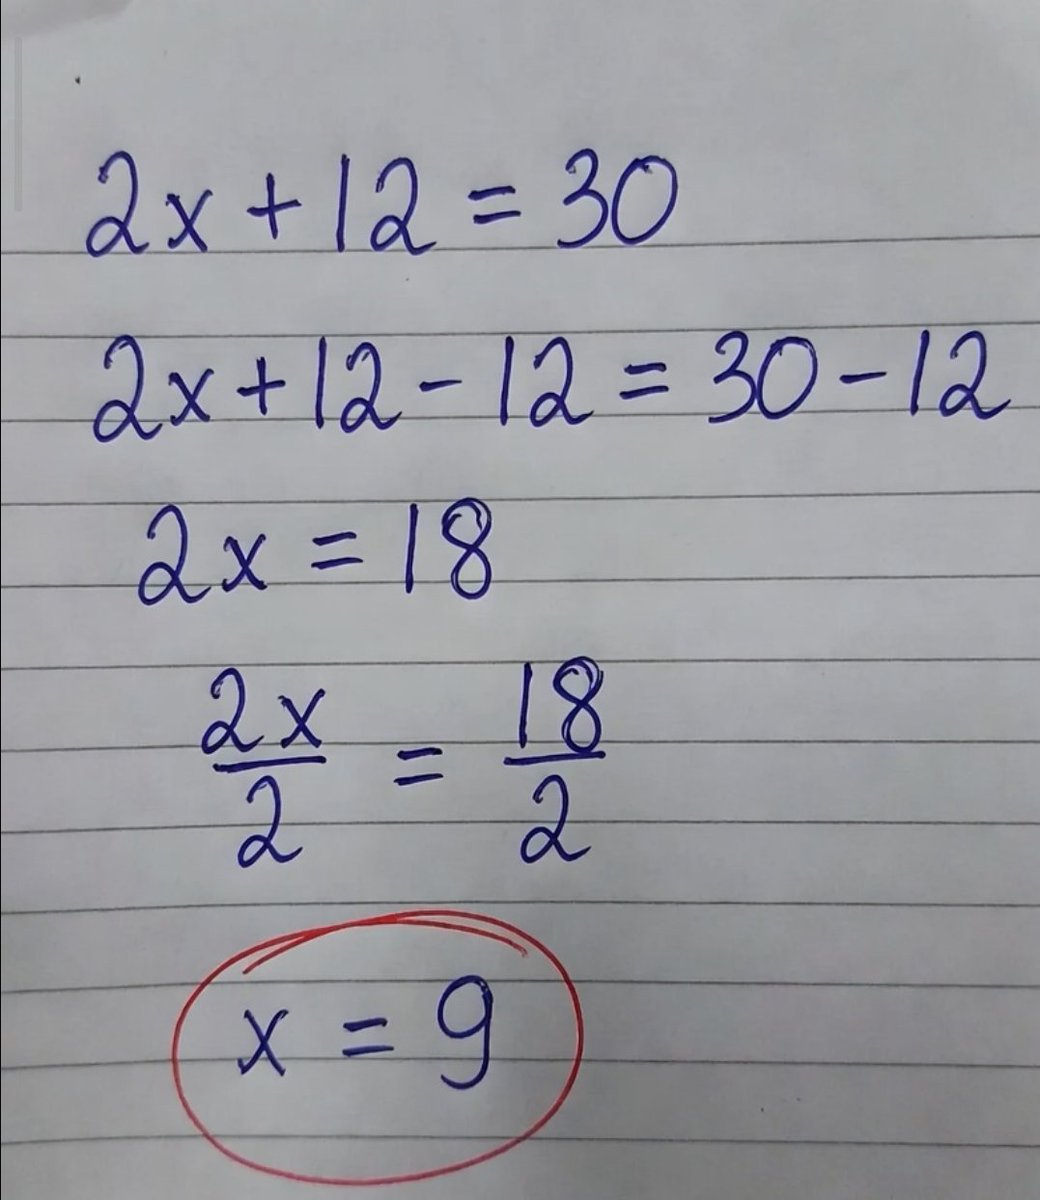 2x + 12 = 30
2x + 12 - 12 = 30 - 12
2x = 18
2x/2 = 18/2
x = 9